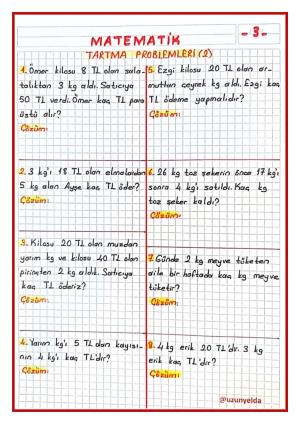 MATEMATİK
- 3 -
TARTMA PROBLEMLERİ (2)
1. Ömer kilosu 8 TL olan sala-
talıktan 3 kg aldı. Satıcıya
50 TL verdi. Ömer kaç TL para
üstü alır?
Çözüm:
2. 3 kg'ı 18 TL olan elmalardan
5 kg alan Ayşe kaç TL öder?
Çözüm:
3. Kilosu 20 TL olan muzdan
yarım kg ve kilosu 40 TL olan
pirinçten 2 kg aldık. Satıcıya
kaç TL öderiz?
Çözüm:
4. Yarım kg'ı 5 TL olan kayısı-
nın 4 kg'ı kaç TL'dir?
Çözüm:
5. Ezgi kilosu 20 TL olan ar-
muttan çeyrek kg aldı. Ezgi kaç
TL ödeme yapmalıdır?
Çözüm:
6. 26 kg toz şekerin önce 17 kg'ı
sonra 4 kg'ı satıldı. Kaç kg
toz şeker kaldı?
Çözüm:
7. Günde 2 kg meyve tüketen
aile bir haftada kaç kg meyve
tüketir?
Çözüm:
8. 4 kg erik 20 TL'dir. 3 kg
erik kaç TL'dir?
Çözüm:
@uzunyelda